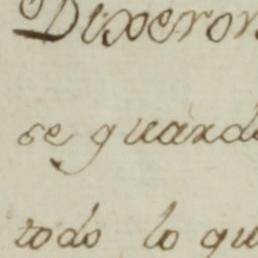 Dixeron
se guard
todo lo qu